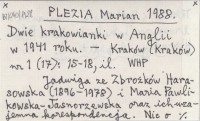 PLEZIA Marian 1988.
Dwie krakowianki w Anglii
w 1941 roku. — Kraków (Kraków)
nr 1 (17): 15-18, il. WHP
Jadwiga ze Zbrożków Hara-
sowska (1896-1978) i Maria Pawli-
kowska-Jasnorzewska oraz ich wza-
jemna korespondencja. Nie o